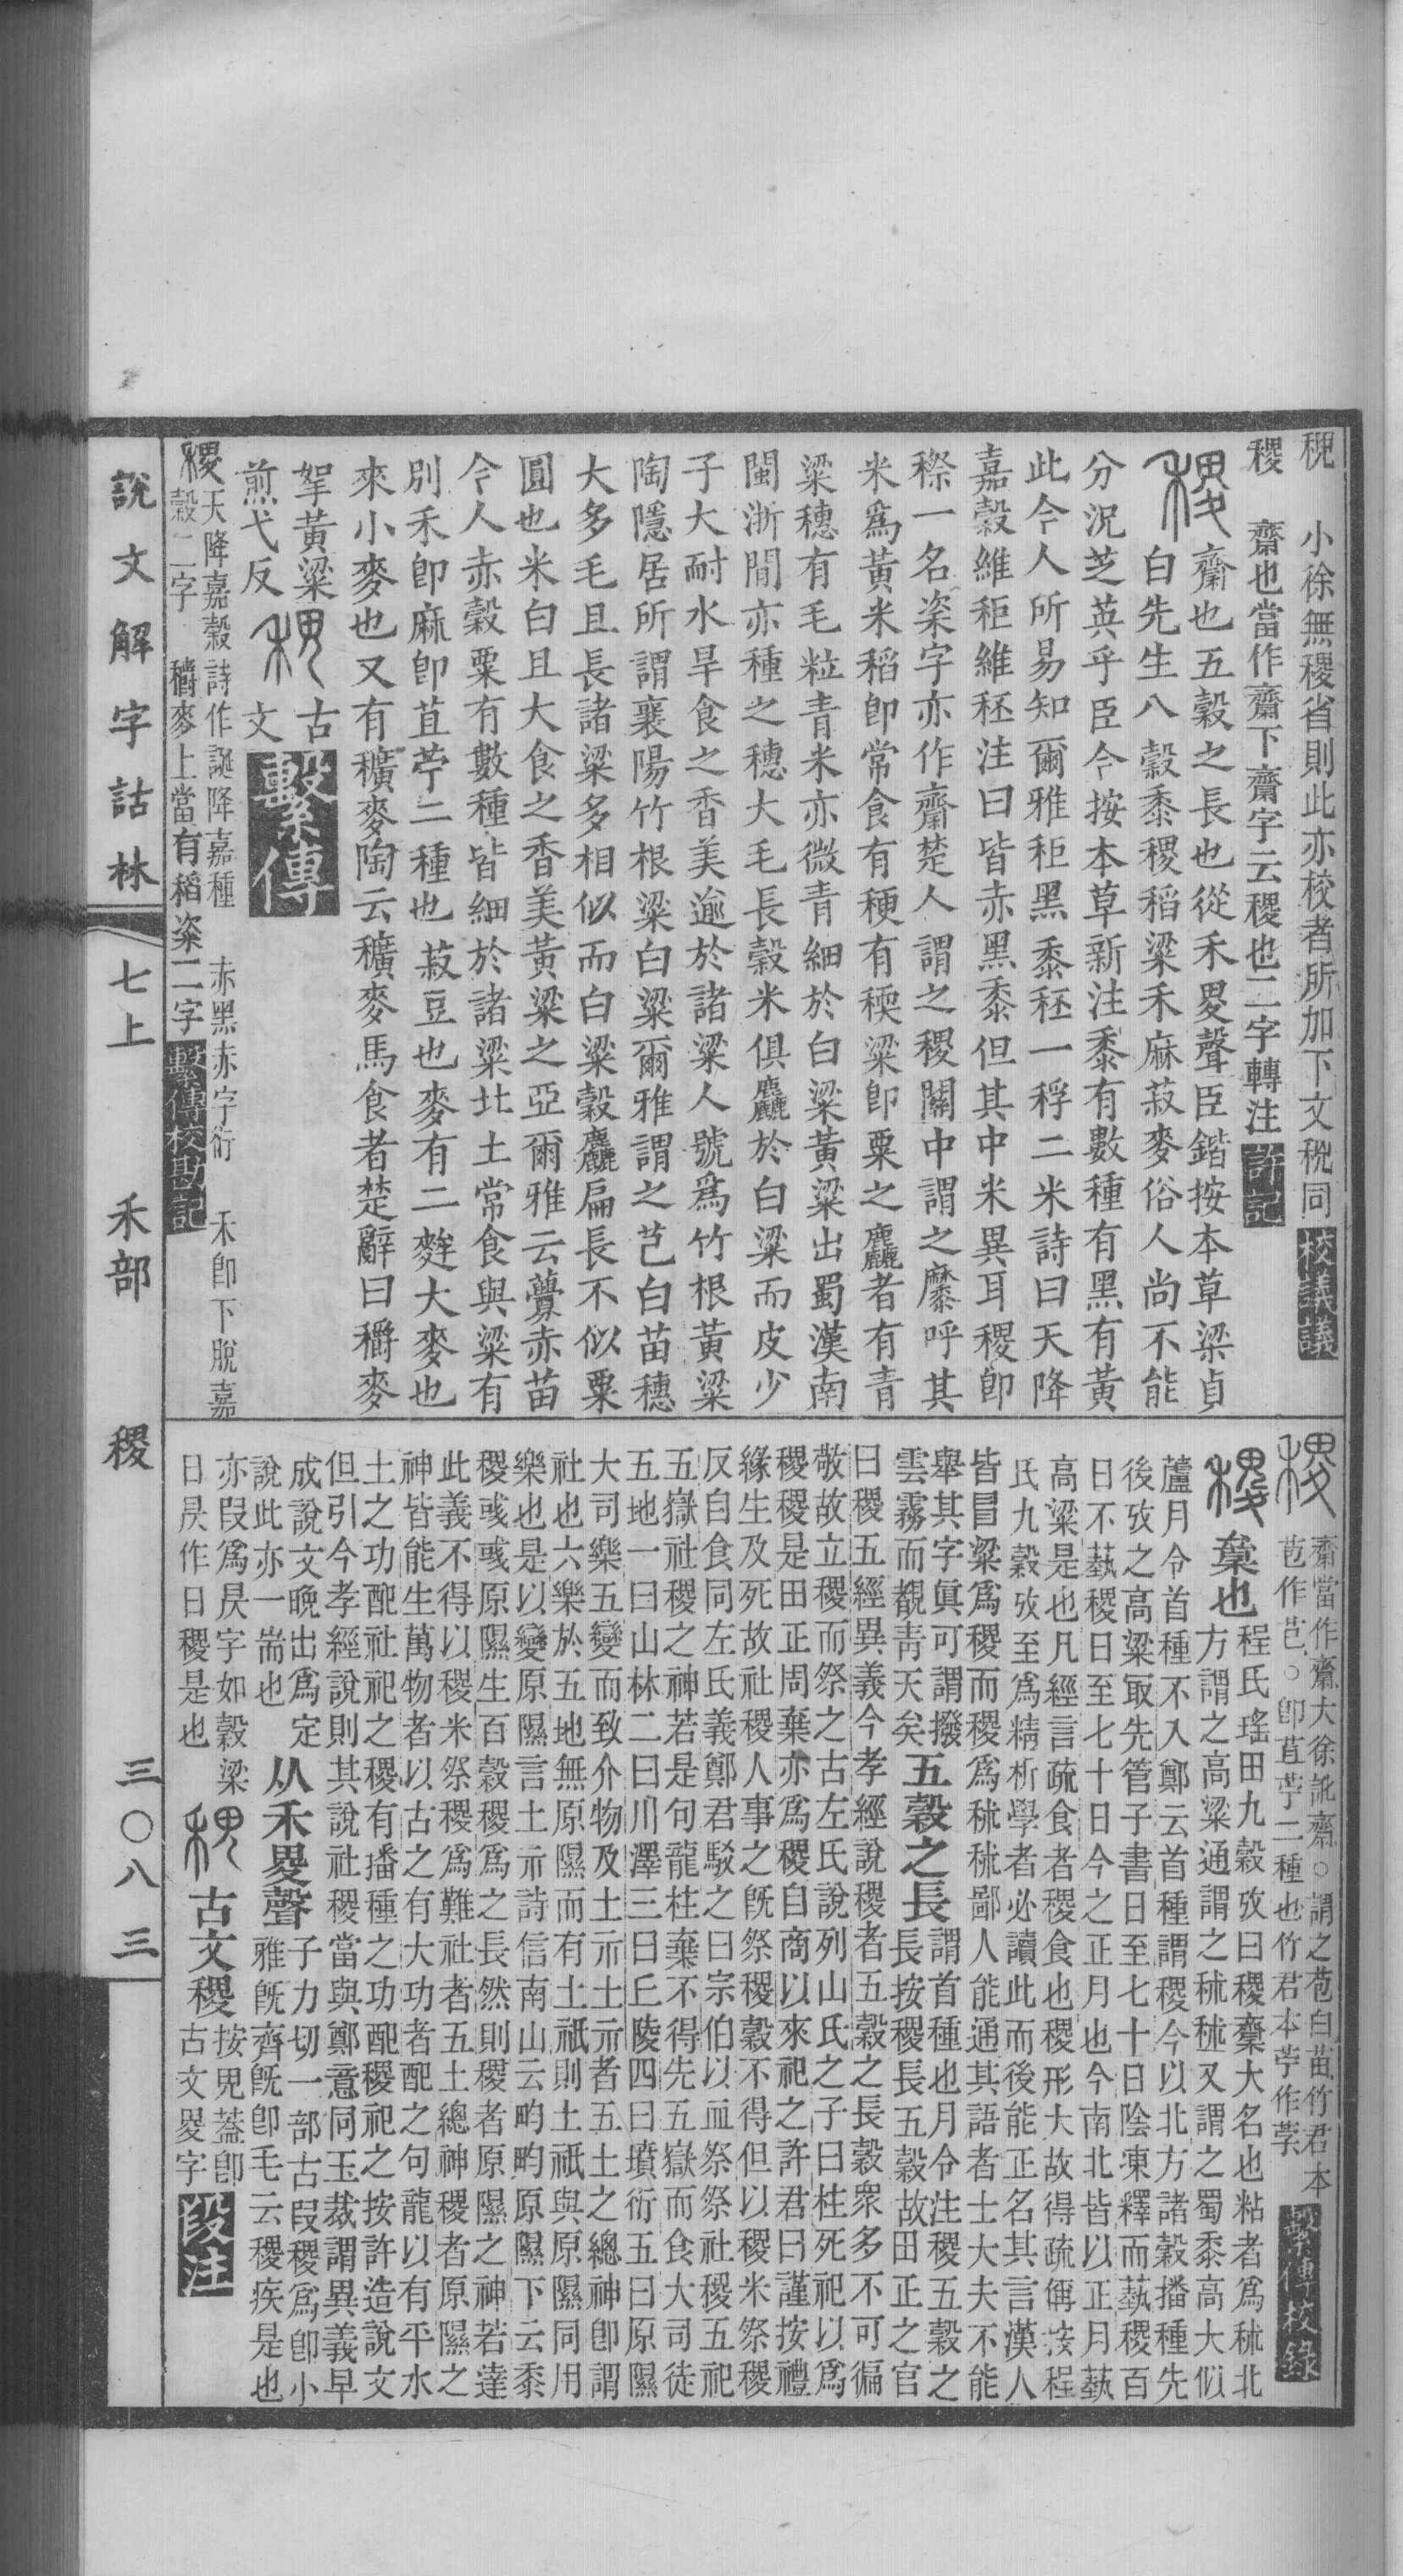 䅉　小徐無稷省則此亦校者所加下文稅同　校議議
稷　齋也當作齎下齎字云稷也二字轉注　許記
稷齋也五穀之長也從禾畟聲臣鍇按本草梁貞
白先生八穀黍稷稻粱禾麻菽麥俗人尚不能
分況芝英乎臣今按本草新注黍有數種有黑有黃
此今人所易知爾雅秬黑黍秠一稃二米詩曰天降
嘉穀維秬維秠注曰皆赤黑黍但其中米異耳稷即
穄一名粢字亦作齋楚人謂之稷關中謂之䵚呼其
米為黃米稻即常食有稉有稬粱即粟之麤者有青
粱穗有毛粒青米亦微青細於白粱黃粱出蜀漢南
閩浙間亦種之穗大毛長穀米俱麤於白粱而皮少
子大耐水旱食之香美逾於諸粱人號為竹根黃粱
陶隱居所謂襄陽竹根粱白粱爾雅謂之芑白苗穗
大多毛且長諸粱多相似而白粱穀麤扁長不似粟
圓也米白且大食之香美黃粱之亞爾雅云虋赤苗
今人赤穀粟有數種皆細於諸粱北土常食與粱有
別禾卽麻卽苴苧二種也菽豆也麥有二麰大麥也
來小麥也又有穬麥陶云穬麥馬食者楚辭曰穱麥
挐黃粱
煎弋反　古文　繫傳
稷　天降嘉穀詩作誕降嘉種　赤黑赤字衍　禾卽下脫嘉
穀二字　穱麥上當有稻粢二字　繫傳校勘記
稷　齋當作齎大徐訛齋○謂之苞白苗竹君本
苞作芑○卽苴苧二種也竹君本苧作荢　繫傳校錄
稷　䆃也　程氏瑤田九穀攷曰稷齋大名也粘者為秫北
方謂之高粱通謂之秫秫又謂之蜀黍高大似
蘆月令首種不入鄭云首種謂稷今以北方諸穀播種先
後攷之高粱取先管子書日至七十日陰凍釋而蓺稷百
日不蓺稷日至七十日今之正月也今南北皆以正月蓺
高粱是也凡經言疏食者稷食也稷形大故得疏偁按程
氏九穀攷至為精析學者必讀此而後能正名其言漢人
皆冒粱為稷而稷為秫秫鄙人能通其語者士大夫不能
舉其字真可謂撥
雲霧而覩靑天矣　五穀之長　謂首種也月令注稷五穀之
長按稷長五穀故田正之官
曰稷五經異義今孝經說稷者五穀之長穀眾多不可徧
敬故立稷而祭之古左氏說列山氏之子曰柱死祀以為
稷稷是田正周棄亦為稷自商以來祀之許君曰謹按禮
緣生及死故社稷人事之旣祭稷穀不得但以稷米祭稷
反自食同左氏義鄭君駁之曰宗伯以血祭祭社稷五祀
五嶽社稷之神若是句龍柱棄不得先五嶽而食大司徒
五地一曰山林二曰川澤三曰丘陵四曰墳衍五曰原隰
大司樂五變而致介物及土示土示者五土之總神卽謂
社也六樂於五地無原隰而有土祇則土祇與原隰同用
樂也是以變原隰言土示詩信南山云畇畇原隰下云黍
稷彧彧原隰生百穀稷為之長然則稷者原隰之神若達
此義不得以稷米祭稷為難社者五土總神稷者原隰之
神皆能生萬物者以古之有大功者配之句龍以有平水
土之功配社祀之稷有播種之功配稷祀之按許造說文
但引今孝經說則其說社稷當與鄭意同玉裁謂異義早
成說文晚出為定
說此亦一耑也　从禾畟聲　子力切一部古叚稷為卽小
雅旣齊旣卽毛云稷疾是也
亦叚為昃字如穀梁
日昃作日稷是也　古文稷　按兒蓋卽
古文畟字　段注
說文解字詁林　七上　禾部　稷　三○八三